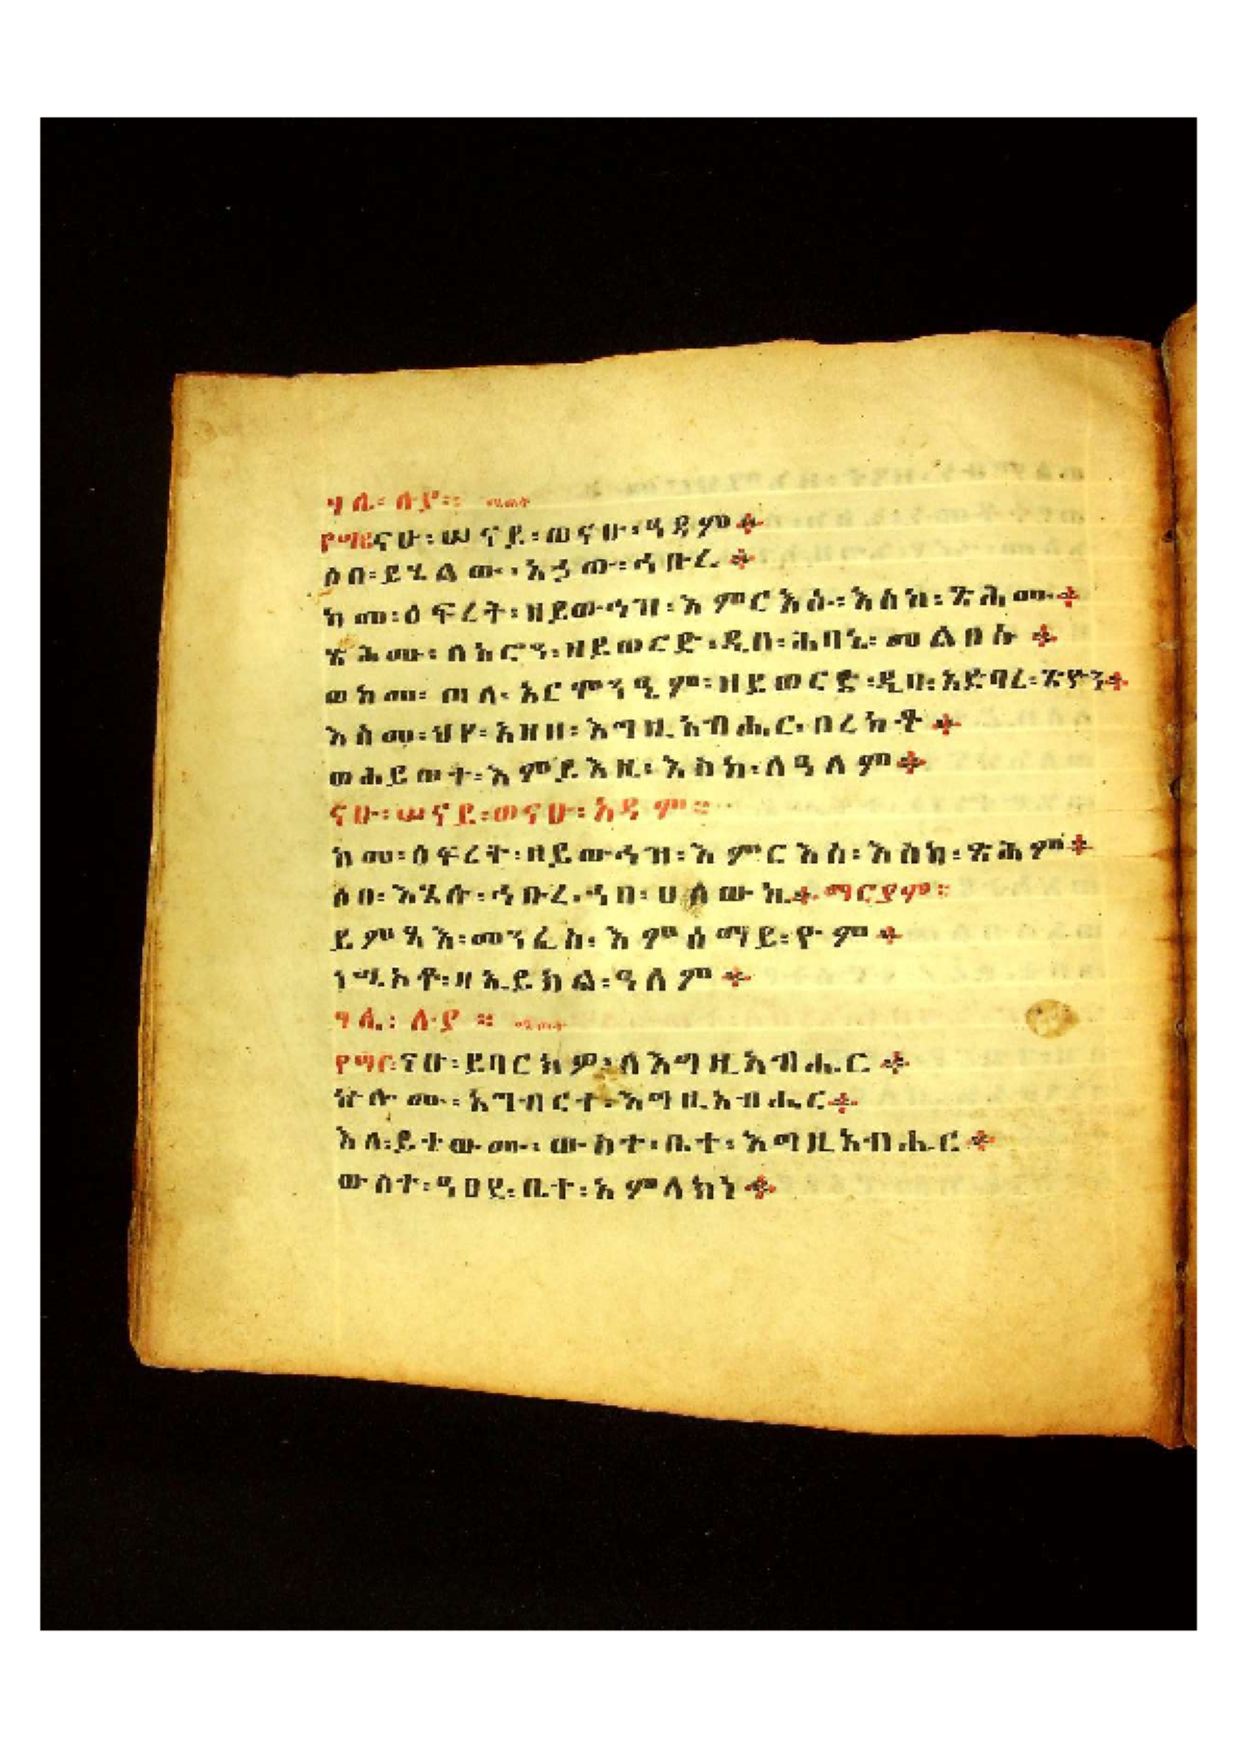 ሃሌ፡ ሉያ፡፡
ናሁ፡ ሠናይ፡ ወናሁ፡ ዓዳም፨
ሶበ፡ ይሄልው፡ አኃው፡ ኅቡረ፨
ከመ፡ ዕፍረት፡ ዘይውኅዝ፡ እምርእሱ፡ እስከ፡ ጽሕሙ፨
ጽሕሙ፡ ለአሮን፡ ዘይወርድ፡ ዲበ፡ ሕባኔ፡ መልበሱ፨
ወከመ፡ ጠለ፡ አርሞንዔም፡ ዘይወርድ፡ ዲበ፡ አድባረ፡ ጽዮን፨
እስመ፡ ህየ፡ አዘዘ፡ እግዚአብሔር፡ በረከቶ፨
ወሕይወተ፡ እምይእዜ፡ እስከ፡ ለዓለም፨
ናሁ፡ ሠናይ፡ ወናሁ፡ አዳም፡፡
ከመ፡ ዕፍረት፡ ዘይውኅዝ፡ እምርእስ፡ እስከ፡ ጽሕም፨
ሶበ፡ እሄሉ፡ ኅቡረ፡ ኀበ፡ ሀለውኪ፨ ማርያም፡፡
ይምጻእ፡ መንፈስ፡ እምሰማይ፡ ዮም፨
ነሚኦቶ፡ ዘኢይክል፡ ዓለም፨
ሃሌ፡ ሉያ፡፡
ናሁ፡ ይባርክዎ፡ ለእግዚአብሔር፨
ኵሎሙ፡ አግብርተ፡ እግዚአብሔር፨
እለ፡ ይቀውሙ፡ ውስተ፡ ቤተ፡ እግዚአብሔር፨
ውስተ፡ ዓፀደ፡ ቤተ፡ አምላክነ፨